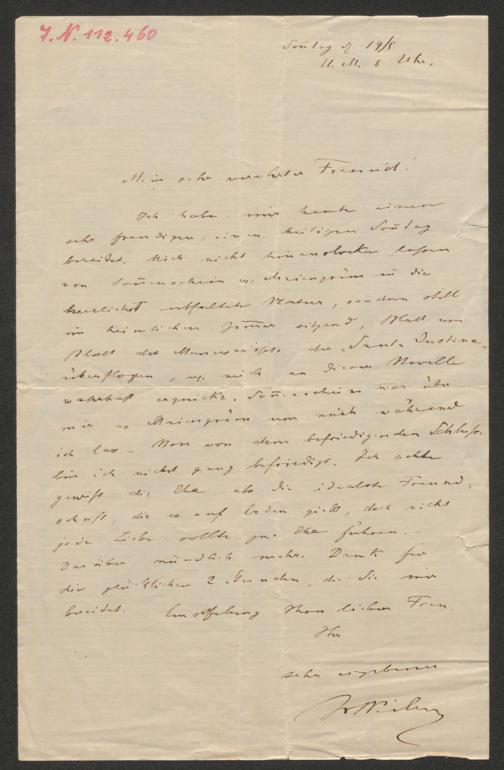 J.N. 112.460
Sonntag d 19/5
N. M. 5 Uhr.
Mein sehr verehrter Freund!
Ich habe mir heute einen
sehr freudigen, einen heiligen Sonntag
bereitet. Mich nicht hinauslocken lassen
von Sonnenschein u. Maiengrün in die
herrlichst entfaltete Natur, sondern still
im heimlichen Zimmer sitzend, Blatt um
Blatt des Manuscripts der "Santa Justina"
überflogen, u. mich an dieser Novelle
wahrhaft erquickt. Sonnenschein war über
mir u. Maiengrün um mich während
ich las. – Nur von dem befriedigenden Schlusse
bin ich nicht ganz befriedigt. Ich achte
gewiß die Ehe als die idealste Freund-
schaft, die es auf Erden giebt, doch nicht
jede Liebe sollte zur Ehe führen. –
Darüber mündlich mehr. Dank für
die glücklichen 2 Stunden, die Sie mir
bereitet. Empfehlung Ihrer lieben Frau.
Ihr
sehr ergebener